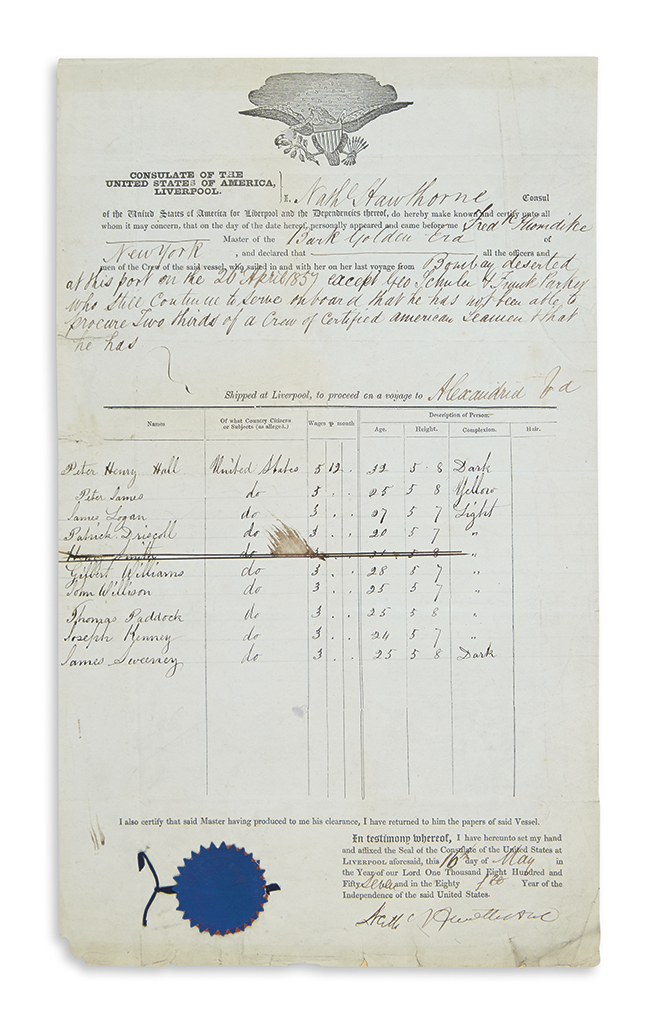 CONSULATE OF THE
UNITED STATES OF AMERICA,
LIVERPOOL.
I, Nathl Hawthorne Consul
of the United States of America for Liverpool and the Dependencies thereof, do hereby make known and certify unto all
whom it may concern, that on the day of the date hereof, personally appeared and came before me Fredk Thorndike
Master of the Bark Golden Era of
New York, and declared that all the officers and
men of the Crew of the said vessel, who sailed in and with her on her last voyage from Bombay deserted
at this port on the 20 April 1857 except Geo Schuler & Frank
who Still Continue to Serve onboard that he has not been able to
procure Two thirds of a Crew of Certified american Seamen & that
he has
Shipped at Liverpool, to proceed on a voyage to Alexandria
Description of Person.
Names Of what Country Citizens or Subjects (as alleged.) Wages ⅌ month Age. Height. Complexion. Hair.
Peter Henry Hall United States 5 12 . 32 5 8 Dark
Peter James do 5 . . 25 5 8 Yellow
James Logan do 3 . . 27 5 7 Light
Patrick Driscoll do 3 . . 20 5 7 "
Henry Smith do 3 . . 5 8 "
Gilbert Williams do 3 . . 28 5 7 "
Tom Willison do 3 . . 25 5 7 "
Thomas Paddock do 3 . . 25 5 8 "
Joseph Kenney do 3 . . 24 5 7 "
James Sweeney do 3 . . 25 5 8 Dark
I also certify that said Master having produced to me his clearance, I have returned to him the papers of said Vessel.
In testimony whereof, I have hereunto set my hand
and affixed the Seal of the Consulate of the United States at
LIVERPOOL aforesaid, this 16th day of May in
the Year of our Lord One Thousand Eight Hundred and
Fifty Seven and in the Eighty Year of the
Independence of the said United States.
Nathl Hawthorne